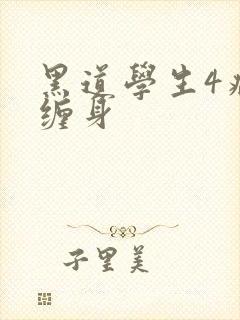 黑道學生4
缠身
子里美